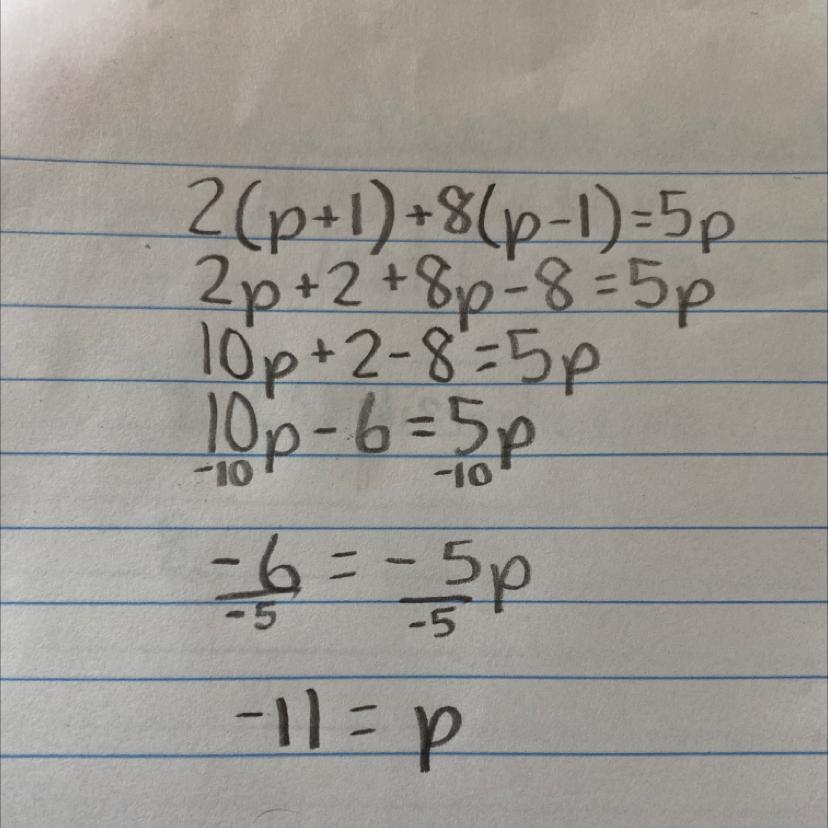 2(p+1)+8(p-1)=5p
2p+2+8p-8=5p
10p+2-8=5p
10p-6=5p
-10 -10
-6=-5p
-5 -5
-11=p